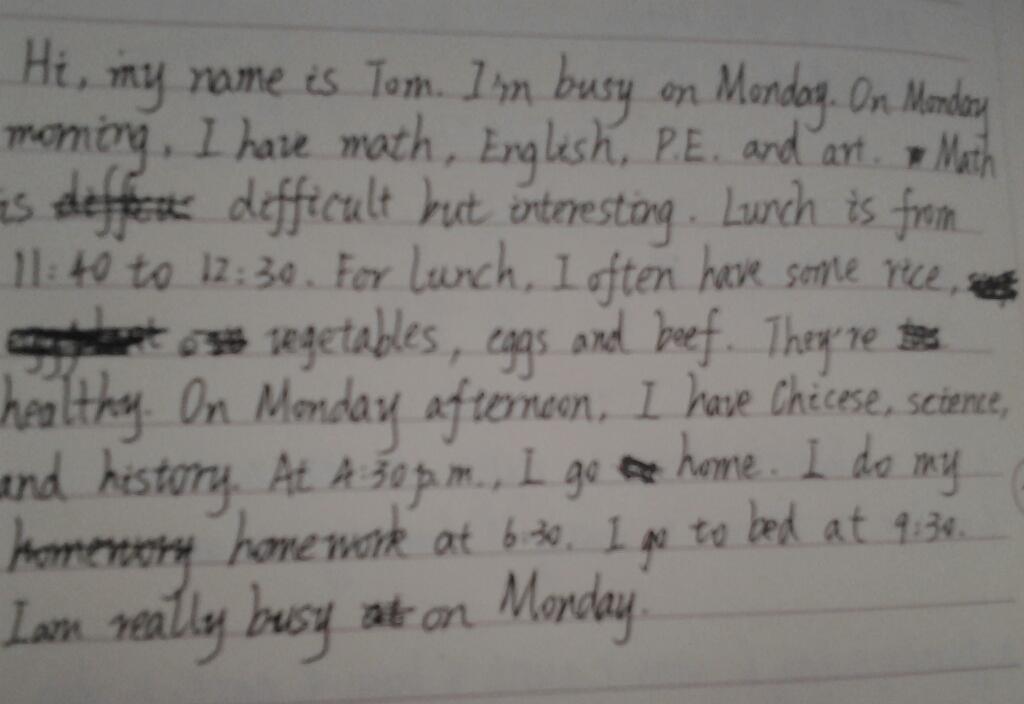 Hi, my name is Tom. I'm busy on Monday. On Monday
morning, I have math, English, P.E. and art. Math
is difficult but interesting. Lunch is from
11:40 to 12:30. For lunch, I often have some rice,
vegetables, eggs and beef. They're
healthy. On Monday afternoon, I have Chicese, science,
and history. At 4:30 p.m., I go home. I do my
homework at 6:30. I go to bed at 9:30.
I am really busy on Monday.